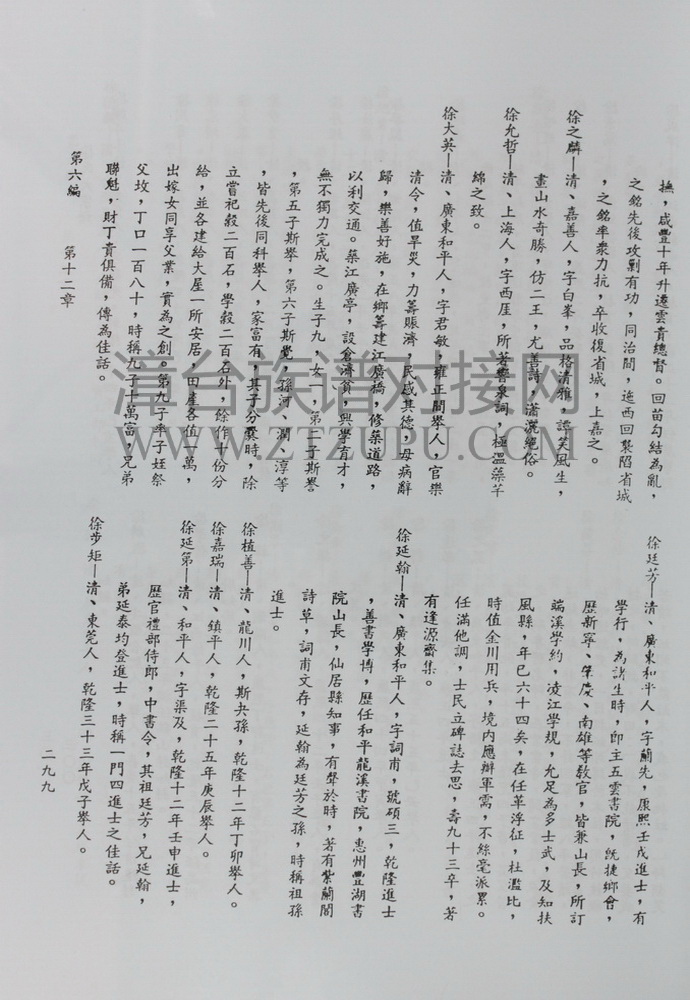 撫，咸豐十年升遷雲貴總督。回苗勾結為亂，
之銘先後攻剿有功，同治間，迤西回襲陷省城
，之銘率眾力抗，卒收復省城，上嘉之。
徐之麟—清、嘉善人，字白峯，品格清雅，談笑風生，
畫山水奇勝，仿二王，尤善詩，瀟灑絕俗。
徐允哲—清、上海人，字西厓，所著響泉詞，極溫藻芊
綿之致。
徐大英—清、廣東和平人，字君敏，雍正間舉人，官樂
清令，值旱災，力籌賑濟，民感其德，母病辭
歸，樂善好施，在鄉籌建江廣橋，修築道路，
以利交通。築江廣亭，設倉濟貧，興學育才，
無不獨力完成之。生子九，女一，第二子斯譽
，第五子斯舉，第六子斯覺，孫河、潤、淳等
，皆先後同科舉人，家富有，其子分爨時，除
立嘗祀穀二百石，學穀二百石外，餘作十份分
給，並各建給大屋一所安居，田產各值一萬，
出嫁女同享父業，實為之創。第九子率子姪祭
父坟，丁口一百八十，時稱九子十萬富，兄弟
聯魁，財丁貴俱備，傳為佳話。
徐廷芳—清、廣東和平人，字蘭先，康熙壬戌進士，有
學行，為諸生時，即主五雲書院，旣捷鄉會，
歷新寧、肇慶、南雄等教官，皆兼山長，所訂
端溪學約，凌江學規，允足為多士式，及知扶
風縣，年已六十四矣，在任革浮征，杜濫比，
時值金川用兵，境內應辦軍需，不絲毫派累。
任滿他調，士民立碑誌去思，壽九十三卒，著
有逢源齋集。
徐延翰—清、廣東和平人，字詞甫，號碩三，乾隆進士
，善書學博，歷任和平龍溪書院，惠州豐湖書
院山長，仙居縣知事，有聲於時，著有紫蘭閣
詩草，詞甫文存，延翰為廷芳之孫，時稱祖孫
進士。
徐植善—清、龍川人，斯夬孫，乾隆十二年丁卯舉人。
徐嘉瑞—清、鎮平人，乾隆二十五年庚辰舉人。
徐延第—清、和平人，字渠及，乾隆十二年壬申進士，
歷官禮部侍郎，中書令，其祖廷芳，兄延翰，
弟延泰均登進士，時稱一門四進士之佳話。
徐步矩—清、東莞人，乾隆三十三年戊子舉人。
第六編　第十二章
二九九
漳台族谱对接网
WWW.ZTZUPU.COM